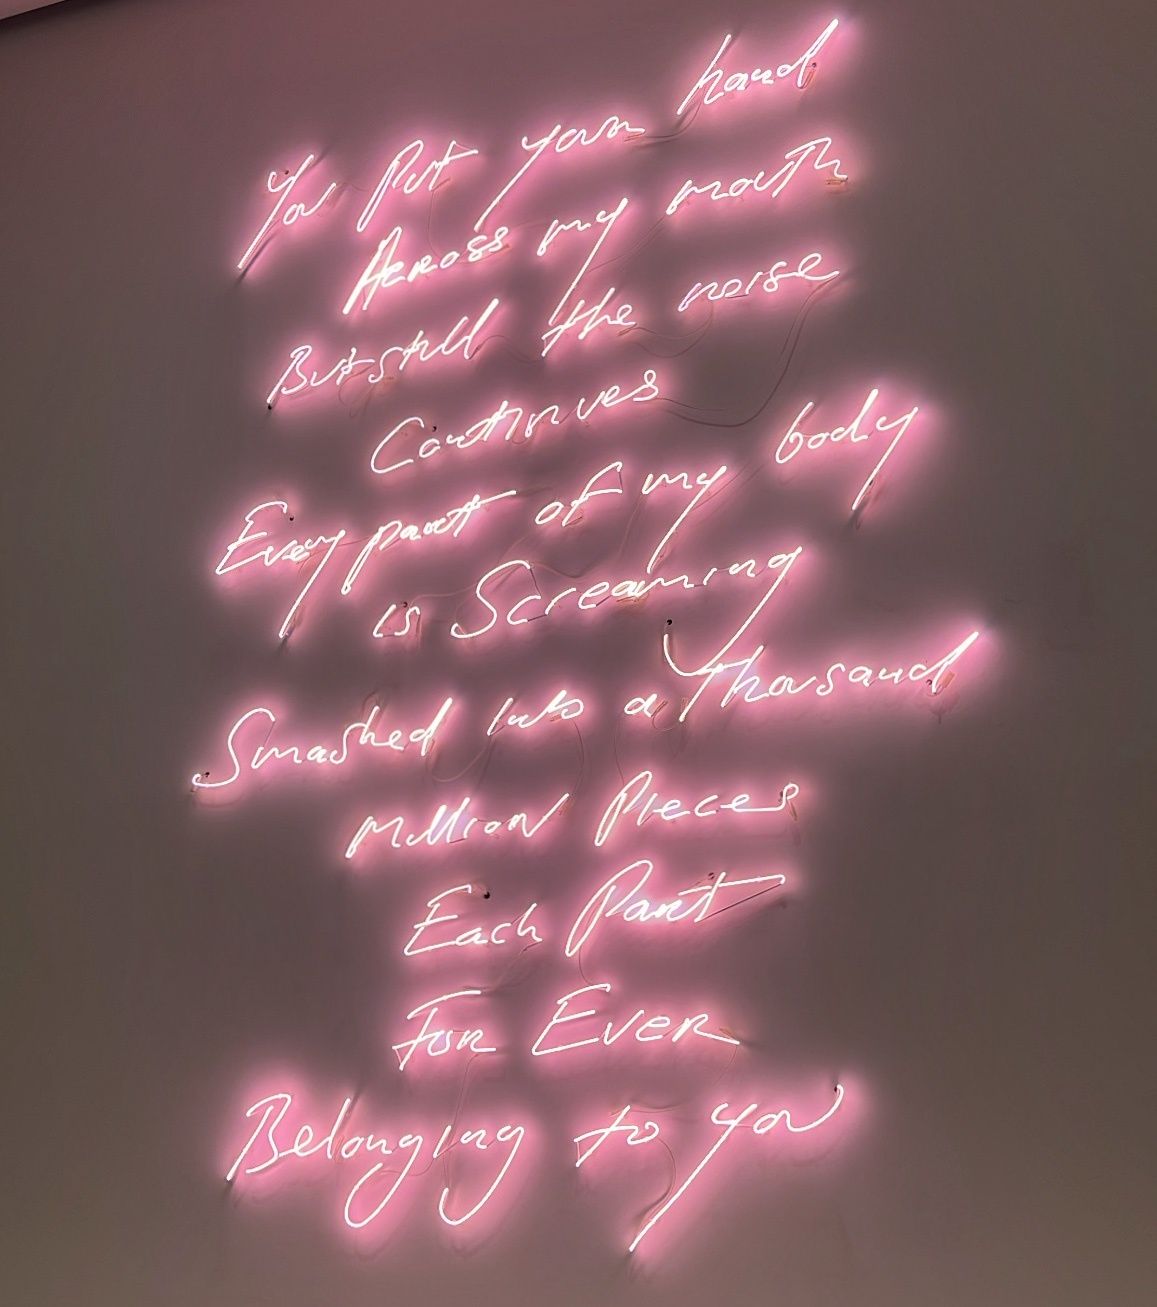 You Put your hand
Across my mouth
But still the noise
Continues
Every part of my body
is Screaming
Smashed into a Thousand
Million Pieces
Each Part
For Ever
Belonging to you